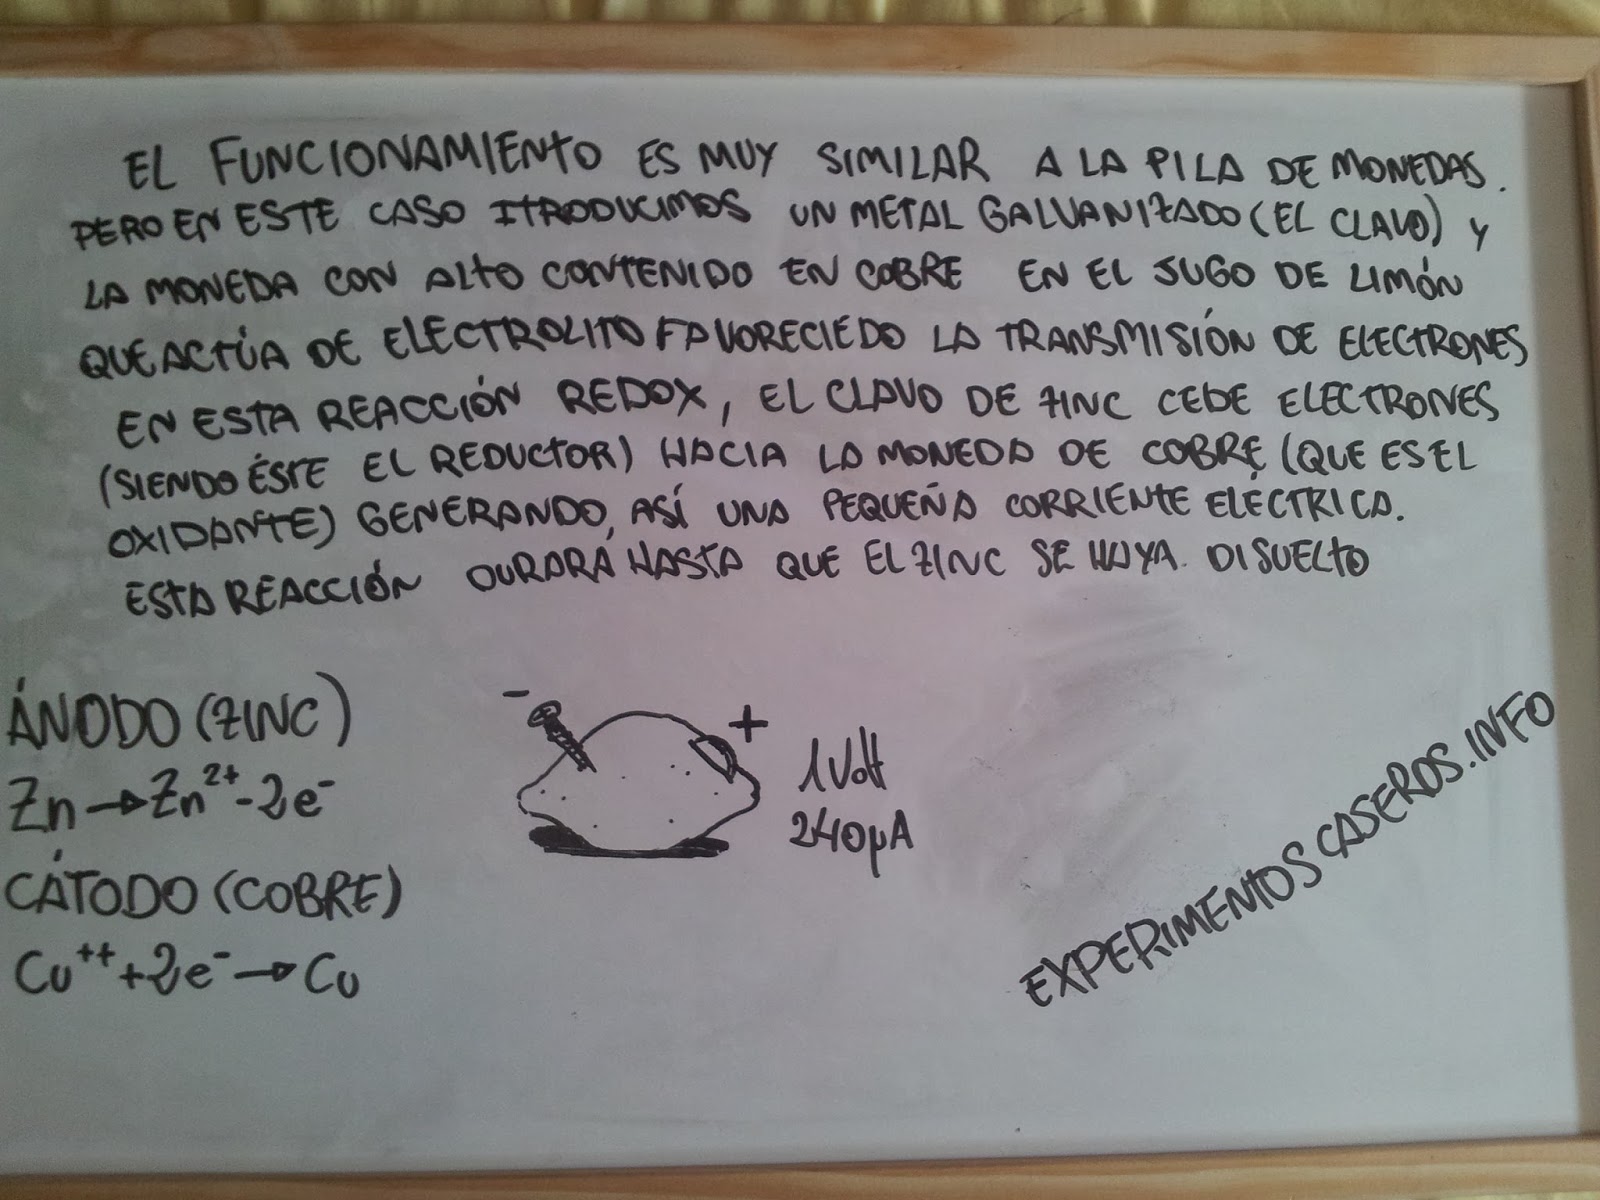 EL FUNCIONAMIENTO ES MUY SIMILAR A LA PILA DE MONEDAS.
PERO EN ESTE CASO ITRODUCIMOS UN METAL GALVANIZADO (EL CLAVO) Y
LA MONEDA CON ALTO CONTENIDO EN COBRE EN EL JUGO DE LIMÓN
QUE ACTÚA DE ELECTROLITO FAVORECIEDO LA TRANSMISIÓN DE ELECTRONES
EN ESTA REACCIÓN REDOX, EL CLAVO DE ZINC CEDE ELECTRONES
(SIENDO ÉSTE EL REDUCTOR) HACIA LA MONEDA DE COBRE (QUE ES EL
OXIDANTE) GENERANDO, ASÍ UNA PEQUEÑA CORRIENTE ELÉCTRICA.
ESTA REACCIÓN DURARÁ HASTA QUE EL ZINC SE HAYA. DISUELTO
ÁNODO (ZINC)
Zn → Zn²⁺ - 2e⁻
CÁTODO (COBRE)
Cu⁺⁺ + 2e⁻ → Cu
- +
1 Volt
240 µA
EXPERIMENTOS CASEROS.INFO